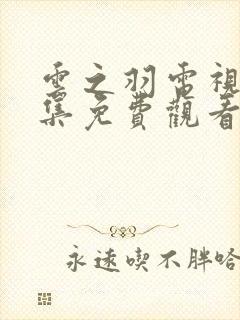 雲之羽電視
集免費觀看
永遠喫不胖哈